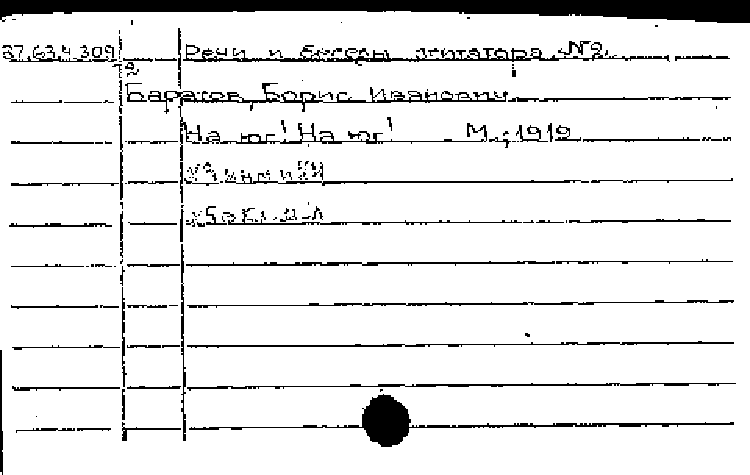 37.63.4.309 Речи и беседы агитатора №2.
2
Баратов, Борис Иванович
На юг! На юг! М., 1919